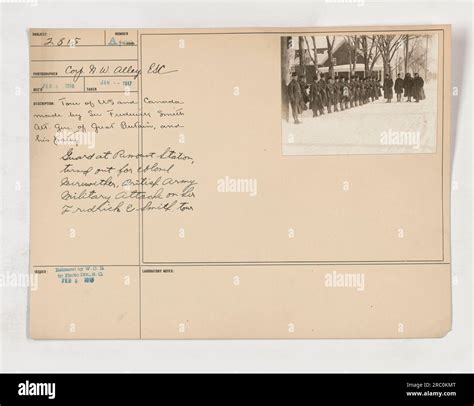 SUBJECT
2515
NUMBER
A
PHOTOGRAPHER Corp N W Alley ESC
REC'D
FEB 6 1918
TAKEN
JAN -- 1917
DESCRIPTION Tour of US and Canada
made by Sir Frederick Smith
Att Gen of Great Britain, and
his
Guard at Remount Station
turned out for Colonel
Merewether, British Army
Military Attach on Sir
Fredrick E Smith tour
ISSUED
Released by W. D. B.
to Photo Div. S. C.
FEB 6 1918
LABORATORY NOTES:
alamy
alamy
alamy
Image ID: 2RC0KMT
www.alamy.com